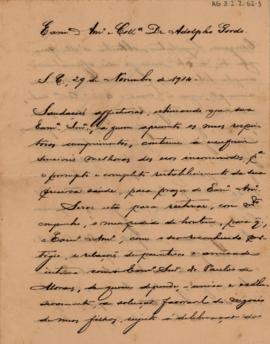 AG 3.2.2.62-3
Exmo. Amo. e Colla. Dr. Adolpho Gordo.
S. C., 29 de Novembro de 1914.
Saudações affectuosas, estimando que sua
Exma. Snra., a quem apresento os meus respeitosos
cumprimentos, continue a
melhoras dos seus incommodos, e
o prompto e completo restabelecimento da sua
saúde, para prazer do Exmo. Amo.
Serve esta para reiterar, com
o meu pedido de hontem, para que
o Exmo. Amo., com o seu reconhecido
e relações de parentesco e amizade
intima com o Exmo. Snr. Dr. Paulo de
Moraes, de quem depende, unica e exclusivamente
a solução favoravel do negocio
de meu filho, sujeito á deliberação do